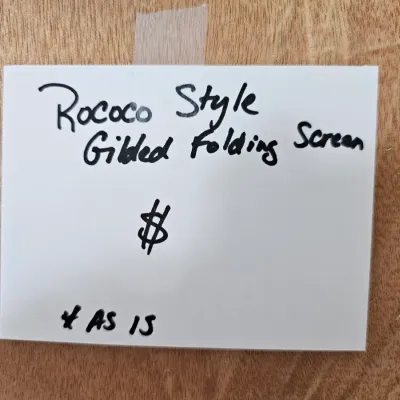 Rococo Style
Gilded Folding Screen
$
* AS IS